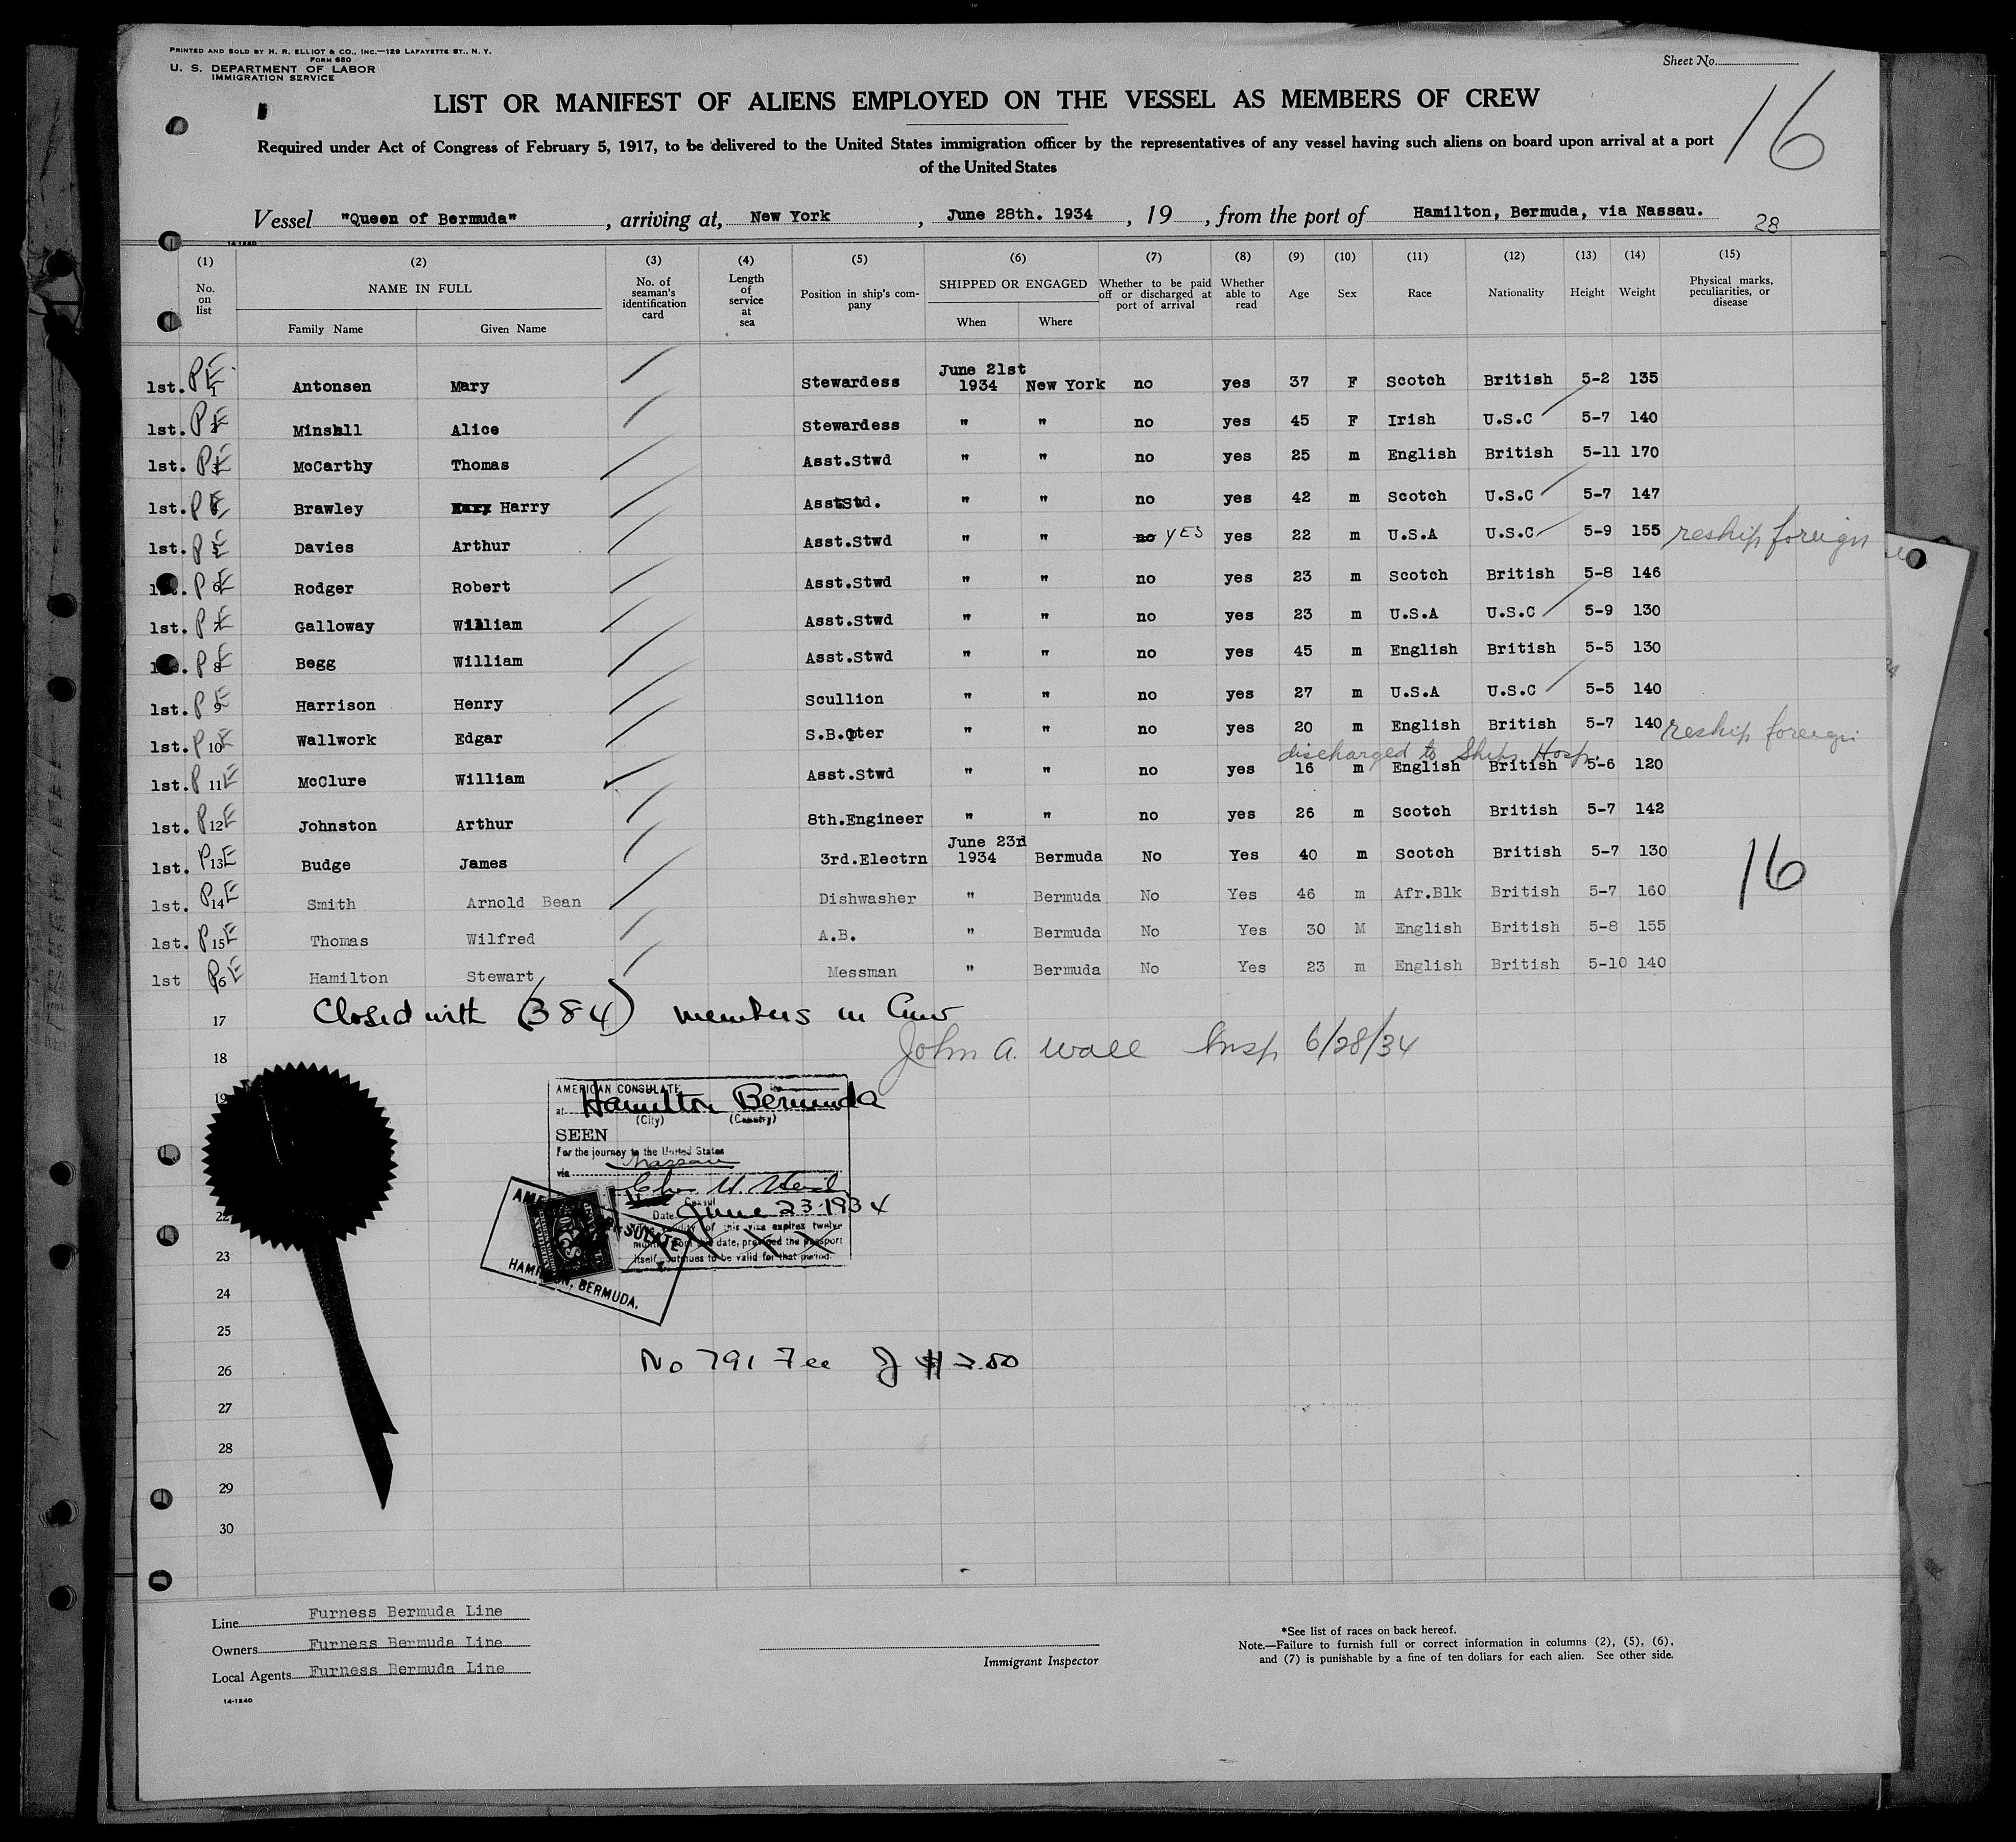 PRINTED AND SOLD BY H. R. ELLIOT & CO., INC.—129 LAFAYETTE ST., N. Y.
FORM 680
U. S. DEPARTMENT OF LABOR
IMMIGRATION SERVICE
Sheet No.
16
LIST OR MANIFEST OF ALIENS EMPLOYED ON THE VESSEL AS MEMBERS OF CREW
Required under Act of Congress of February 5, 1917, to be delivered to the United States immigration officer by the representatives of any vessel having such aliens on board upon arrival at a port
of the United States
Vessel "Queen of Bermuda", arriving at, New York, June 28th. 1934, 19 , from the port of Hamilton, Bermuda, via Nassau.
28
14-1240
(1) No. on list (2) NAME IN FULL Family Name Given Name (3) No. of seaman's identification card (4) Length of service at sea (5) Position in ship's company (6) SHIPPED OR ENGAGED When Where (7) Whether to be paid off or discharged at port of arrival (8) Whether able to read (9) Age (10) Sex (11) Race (12) Nationality (13) Height (14) Weight (15) Physical marks, peculiarities, or disease
1st. PE 1 Antonsen Mary Stewardess June 21st 1934 New York no yes 37 F Scotch British 5-2 135
1st. PE Minshll Alice Stewardess " " no yes 45 F Irish U.S.C 5-7 140
1st. PE 3 McCarthy Thomas Asst.Stwd " " no yes 25 m English British 5-11 170
1st. PE Brawley Harry Asst.Std. " " no yes 42 m Scotch U.S.C 5-7 147
1st. PE 5 Davies Arthur Asst.Stwd " " no YES yes 22 m U.S.A U.S.C 5-9 155 reship foreign
1st. PE 6 Rodger Robert Asst.Stwd " " no yes 23 m Scotch British 5-8 146
1st. PE 7 Galloway William Asst.Stwd " " no yes 23 m U.S.A U.S.C 5-9 130
PE 8 Begg William Asst.Stwd " " no yes 45 m English British 5-5 130
1st. PE 9 Harrison Henry Scullion " " no yes 27 m U.S.A U.S.C 5-5 140
1st. P10E Wallwork Edgar S.B.Pter " " no yes 20 m English British 5-7 140 reship foreign
discharged to Ships Hosp.
1st. P11E McClure William Asst.Stwd " " no yes 16 m English British 5-6 120
1st. P12E Johnston Arthur 8th.Engineer " " no yes 26 m Scotch British 5-7 142
1st. P13E Budge James 3rd.Electrn June 23rd 1934 Bermuda No Yes 40 m Scotch British 5-7 130
16
1st. P14E Smith Arnold Bean Dishwasher " Bermuda No Yes 46 m Afr.Blk British 5-7 160
1st. P15E Thomas Wilfred A.B. " Bermuda No Yes 30 M English British 5-8 155
1st P6E Hamilton Stewart Messman " Bermuda No Yes 23 m English British 5-10 140
17 Closed with (384) members in Crew
18 John A. Wall Insp 6/28/34
19
AMERICAN CONSULATE
at Hamilton Bermuda
(City) (Country)
SEEN
For the journey to the United States
via Nassau
Consul
Date June 23 1934
The validity of this visa expires twelve
months from date, provided the passport
itself continues to be valid for that period.
AMERICAN CONSULATE
HAMILTON, BERMUDA.
22
23
24
25
26 No 791 Fee $
27
28
29
30
Line Furness Bermuda Line
Owners Furness Bermuda Line
Local Agents Furness Bermuda Line
14-1240
Immigrant Inspector
*See list of races on back hereof.
Note.—Failure to furnish full or correct information in columns (2), (5), (6),
and (7) is punishable by a fine of ten dollars for each alien. See other side.